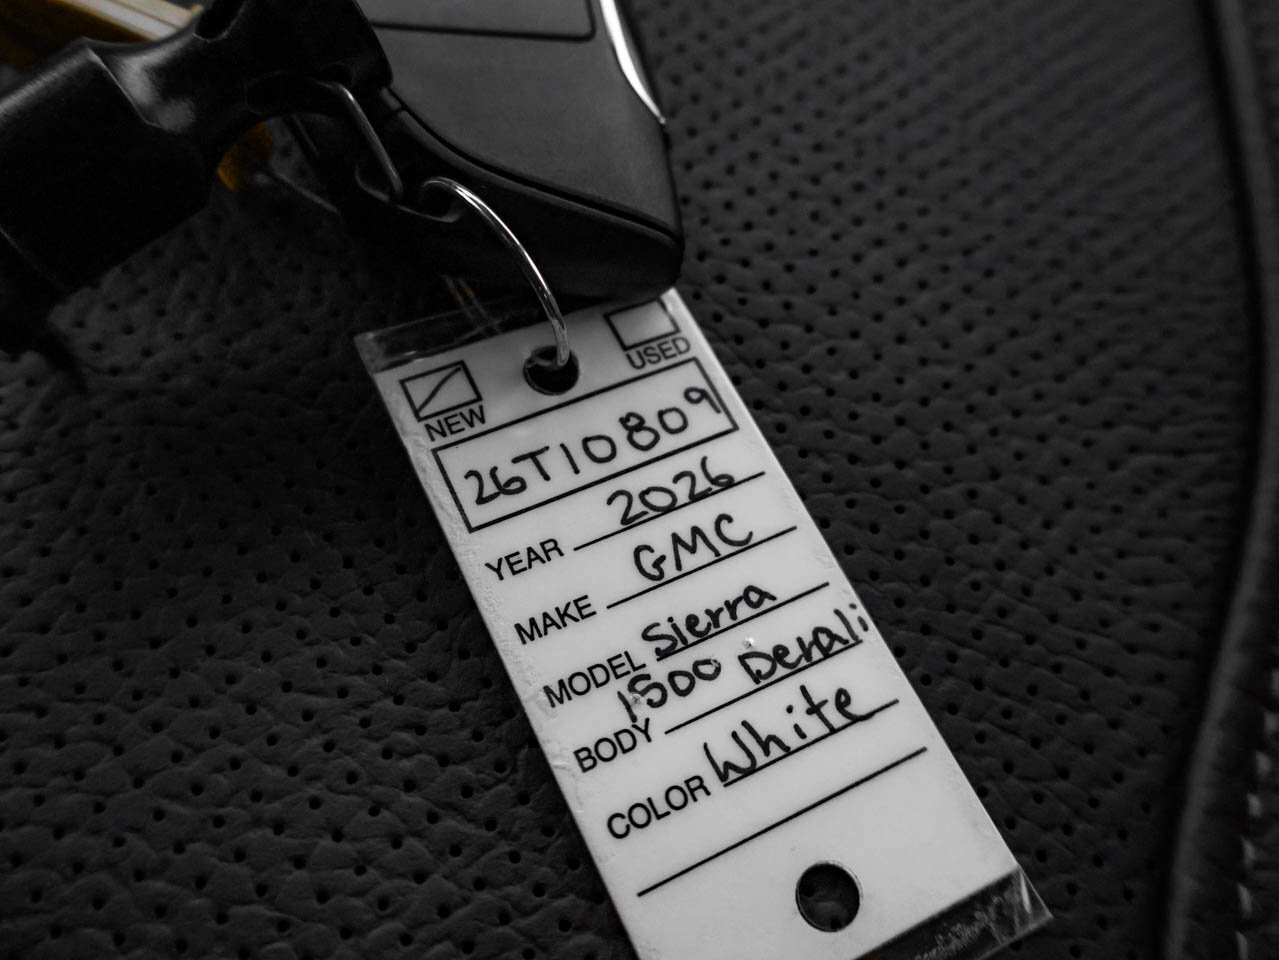 NEW USED
26T10809
YEAR 2026
MAKE GMC
MODEL Sierra
1500 Denali
BODY
COLOR White